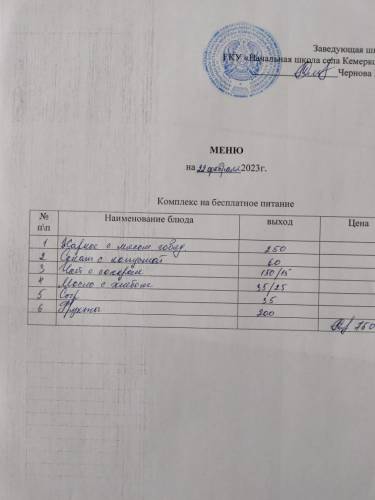 Заведующая
ГКУ «Начальная школа села Кемерк
Чернова
МЕНЮ
на 22 февраля 2023г.
Комплекс на бесплатное питание
№ п\п Наименование блюда выход Цена
1 Жаркое с мясом говяд. 250
2 Салат с капустой 60
3 Чай с сахаром 150/15
4 Масло с хлебом 35/25
5 Сыр 35
6 Фрукты 200